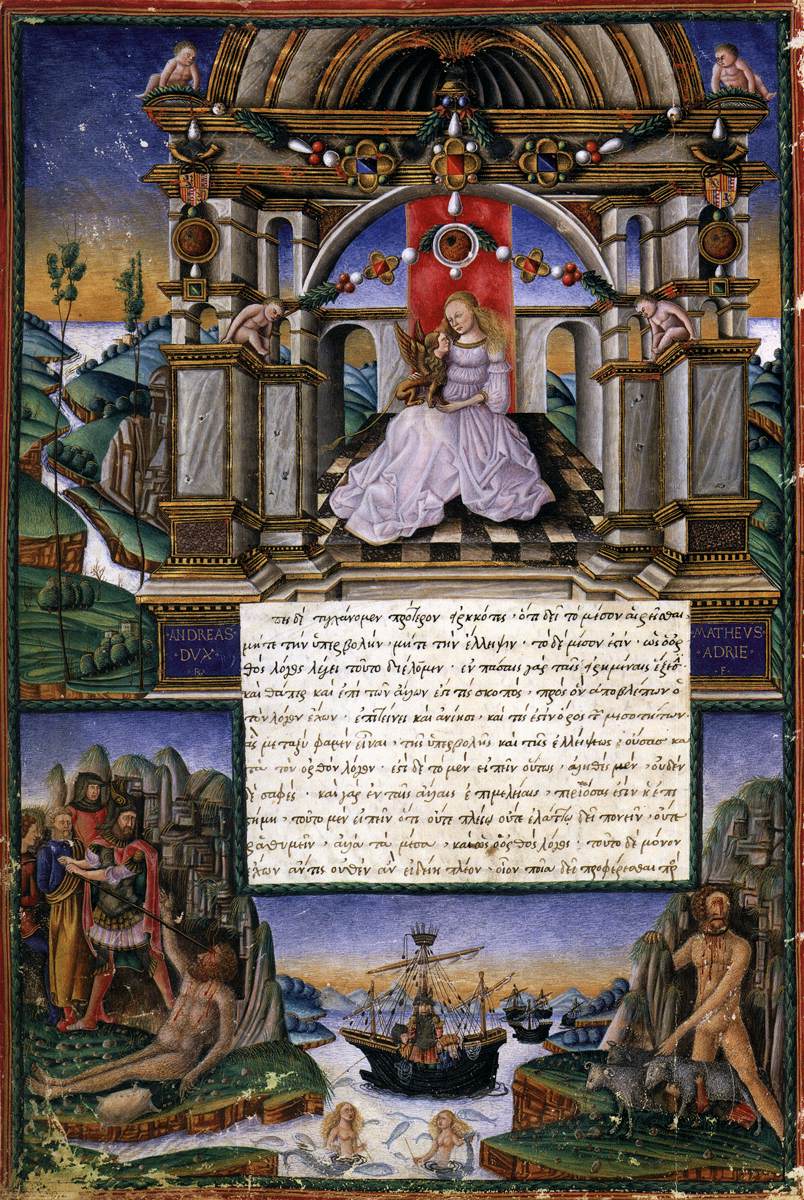 ANDREAS
DVX
·R·
MATHEVS
ADRIE
·F·
πεὶ δὲ τυγχάνομεν πρότερον εἰρηκότες · ὅτι δεῖ τὸ μέσον αἱρεῖσθαι
μήτε τὴν ὑπερβολήν · μήτε τὴν ἔλλειψιν · τὸ δὲ μέσον ἐστίν · ὡς ὁ ὀρ
θὸς λόγος λέγει τοῦτο διέλομεν · ἐν πάσαις γὰρ ταῖς εἰρημέναις ἕξεσι
καθάπερ καὶ ἐπὶ τῶν ἄλλων ἔστι τις σκοπὸς · πρὸς ὃν ἀποβλέπων ὁ
τὸν λόγον ἔχων · ἐπιτείνει καὶ ἀνίησι · καὶ τίς ἐστιν ὅρος τῶν μεσοτήτων ·
ἃς μεταξύ φαμὲν εἶναι · τῆς ὑπερβολῆς καὶ τῆς ἐλλείψεως · οὔσας κα
τὰ τὸν ὀρθὸν λόγον · ἔστι δὲ τὸ μὲν εἰπεῖν οὕτως · ἀληθὲς μέν · οὐδὲν
δὲ σαφές · καὶ γὰρ ἐν ταῖς ἄλλαις ἐπιμελείαις · περὶ ὅσας ἐστὶν ἐπι
στήμη · τοῦτο μὲν εἰπεῖν ὅτι οὔτε πλείω οὔτε ἐλάττω δεῖ πονεῖν · οὔτε
ῥαθυμεῖν · ἀλλὰ τὰ μέσα · καὶ ὡς ὁ ὀρθὸς λόγος · τοῦτο δὲ μόνον
ἔχων ἄν τις οὐθὲν ἂν εἰδείη πλέον · οἷον ποῖα δεῖ προσφέρεσθαι πρὸ